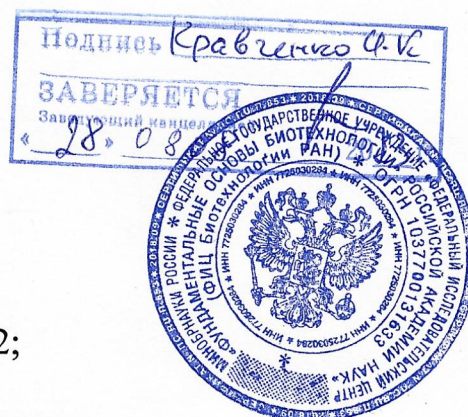 Подпись Кравченко И.К.
ЗАВЕРЯЕТСЯ
Заведующий канцеля
« 28 » 08
МИНОБРНАУКИ РОССИИ * ФЕДЕРАЛЬНОЕ ГОСУДАРСТВЕННОЕ УЧРЕЖДЕНИЕ «ФЕДЕРАЛЬНЫЙ ИССЛЕДОВАТЕЛЬСКИЙ ЦЕНТР
«ФУНДАМЕНТАЛЬНЫЕ ОСНОВЫ БИОТЕХНОЛОГИИ» РОССИЙСКОЙ АКАДЕМИИ НАУК»
(ФИЦ Биотехнологии РАН) * ОГРН 1037700131633
* ИНН 7725030284 * ИНН 7725030284 * ИНН 7725030284
2;